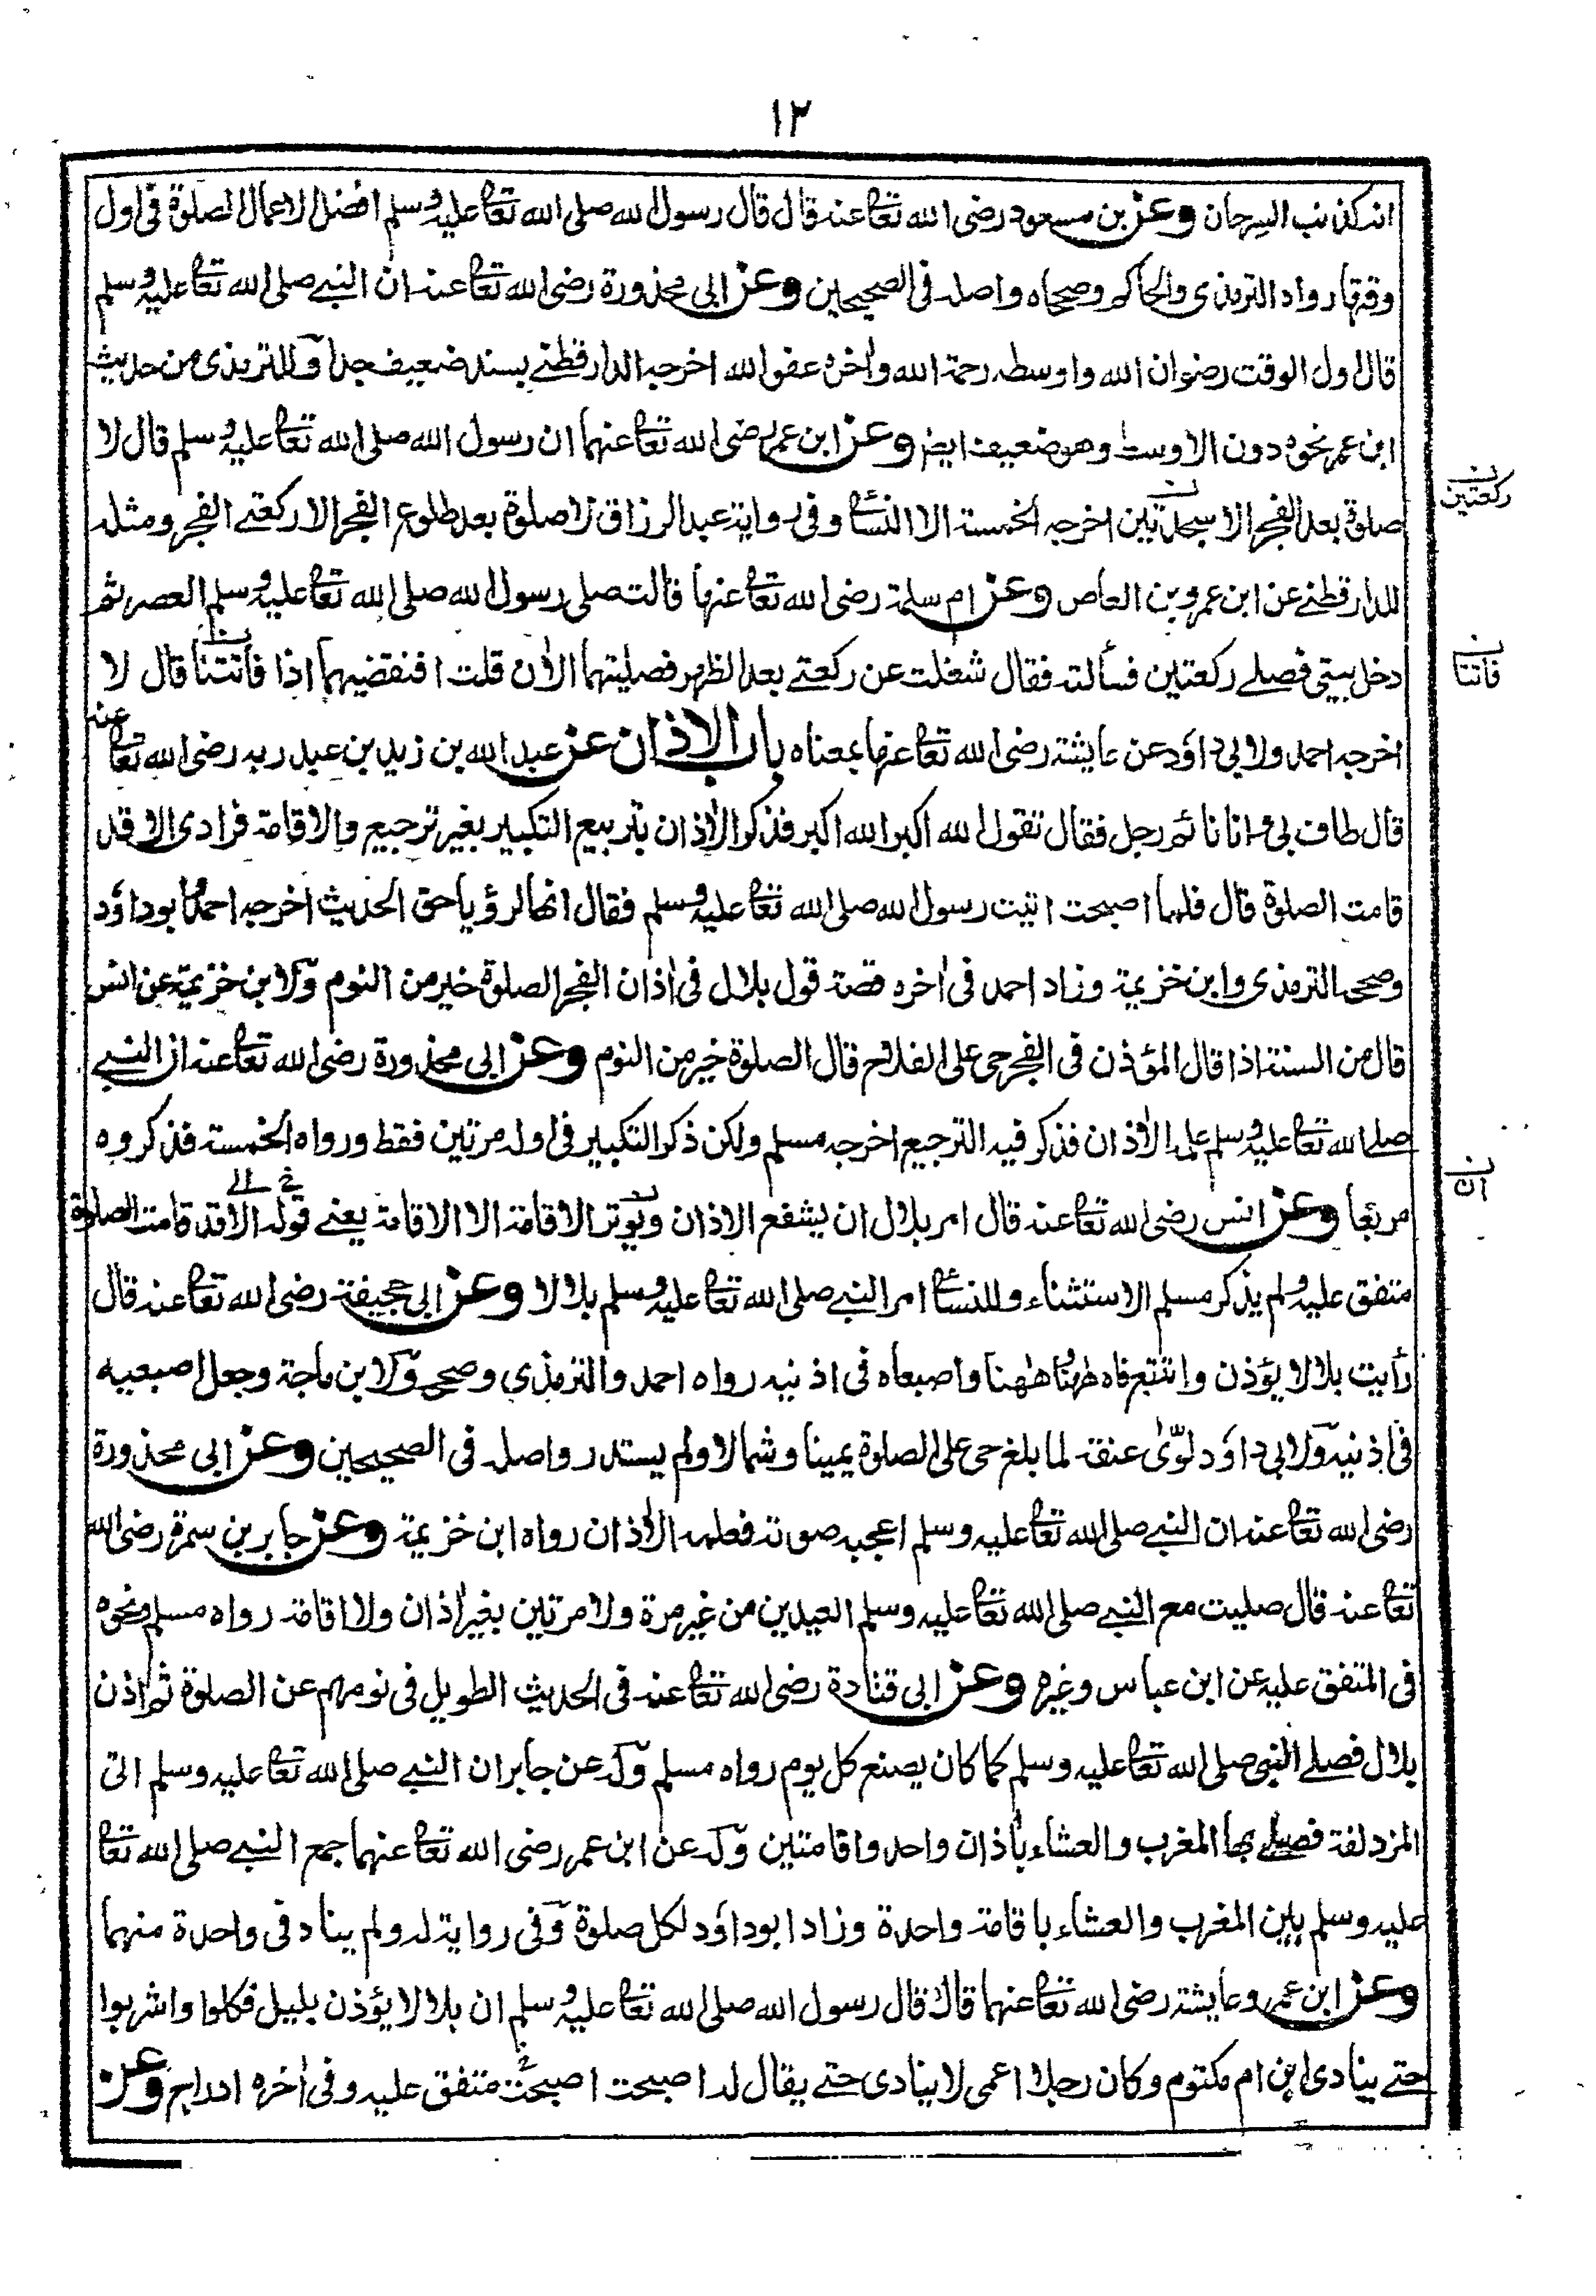 ١٢
انه كذنب السرحان وعن بن مسعود رضى الله تعا عنه قال قال رسول الله صلى الله تعا عليه وسلم افضل الاعمال الصلوة فى اول
وقتها رواه الترمذى والحاكم وصححاه واصله فى الصحيحين وعن ابى محذورة رضى الله تعا عنه ان النبى صلى الله تعا عليه وسلم
قال اول الوقت رضوان الله واوسطه رحمة الله وأخره عفو الله اخرجه الدارقطنى بسند ضعيف جدا وللترمذى من حديث
ابن عمر نحوه دون الاوسط وهو ضعيف ايضا وعن ابن عمر رضى الله تعا عنهما ان رسول الله صلى الله تعا عليه وسلم قال لا
صلوة بعد الفجر الا سجدتين اخرجه الخمسة الا النسائ وفى رواية عبد الرزاق لا صلوة بعد طلوع الفجر الا ركعتى الفجر ومثله
ن ركعتين
للدارقطنى عن ابن عمرو بن العاص وعن ام سلمة رضى الله تعا عنها قالت صلى رسول الله صلى الله تعا عليه وسلم العصر ثم
دخل بيتى فصلى ركعتين فسألته فقال شغلت عن ركعتى بعد الظهر فصليتهما الأن قلت افنقضيهما اذا فاتتنا قال لا
ن فاتتا
اخرجه احمد ولابى داؤد عن عايشة رضى الله تعا عنها بمعناه باب الاذان عن عبد الله بن زيد بن عبد ربه رضى الله تعا عنه
قال طاف بى وانا نائم رجل فقال تقول الله اكبر الله اكبر فذكر الأذان بتربيع التكبير بغير ترجيع والاقامة فرادى الا قد
قامت الصلوة قال فلما اصبحت اتيت رسول الله صلى الله تعا عليه وسلم فقال انها لرؤيا حق الحديث اخرجه احمد وابو داؤد
وصححه الترمذى وابن خزيمة وزاد احمد فى أخره قصة قول بلال فى أذان الفجر الصلوة خير من النوم ولابن خزيمة عن انس
قال من السنة اذا قال المؤذن فى الفجر حى على الفلاح قال الصلوة خير من النوم وعن ابى محذورة رضى الله تعا عنه ان النبى
صلى الله تعا عليه وسلم علمه الأذان فذكر فيه الترجيع اخرجه مسلم ولكن ذكر التكبير فى اوله مرتين فقط ورواه الخمسة فذكروه
مربعا وعن انس رضى الله تعا عنه قال امر بلال ان يشفع الاذان ويوتر الاقامة الا الاقامة يعنى قوله الا قد قامت الصلوة
ن ان
متفق عليه ولم يذكر مسلم الاستثناء وللنسائ امر النبى صلى الله تعا عليه وسلم بلالا وعن ابى جحيفة رضى الله تعا عنه قال
رأيت بلالا يؤذن واتتبع فاه ههنا وههنا واصبعاه فى اذنيه رواه احمد والترمذى وصححه ولابن ماجة وجعل اصبعيه
فى اذنيه ولابى داؤد لوّى عنقه لما بلغ حى على الصلوة يمينا وشمالا ولم يستدر واصله فى الصحيحين وعن ابى محذورة
رضى الله تعا عنه ان النبى صلى الله تعا عليه وسلم اعجبه صوته فعلمه الأذان رواه ابن خزيمة وعن جابر بن سمرة رضى الله
تعا عنه قال صليت مع النبى صلى الله تعا عليه وسلم العيدين من غير مرة ولا مرتين بغير أذان ولا اقامة رواه مسلم ونحوه
فى المتفق عليه عن ابن عباس وغيره وعن ابى قتادة رضى الله تعا عنه فى الحديث الطويل فى نومهم عن الصلوة ثم أذن
بلال فصلى النبى صلى الله تعا عليه وسلم كما كان يصنع كل يوم رواه مسلم وله عن جابر ان النبى صلى الله تعا عليه وسلم اتى
المزدلفة فصلى بها المغرب والعشاء بأذان واحد واقامتين وله عن ابن عمر رضى الله تعا عنهما جمع النبى صلى الله تعا
عليه وسلم بين المغرب والعشاء باقامة واحدة وزاد ابو داؤد لكل صلوة وفى رواية له ولم يناد فى واحدة منهما
وعن ابن عمر وعايشة رضى الله تعا عنهما قالا قال رسول الله صلى الله تعا عليه وسلم ان بلالا يؤذن بليل فكلوا واشربوا
حتى ينادى ابن ام مكتوم وكان رجلا اعمى لا ينادى حتى يقال له اصبحت اصبحت متفق عليه وفى أخره ادراج وعن